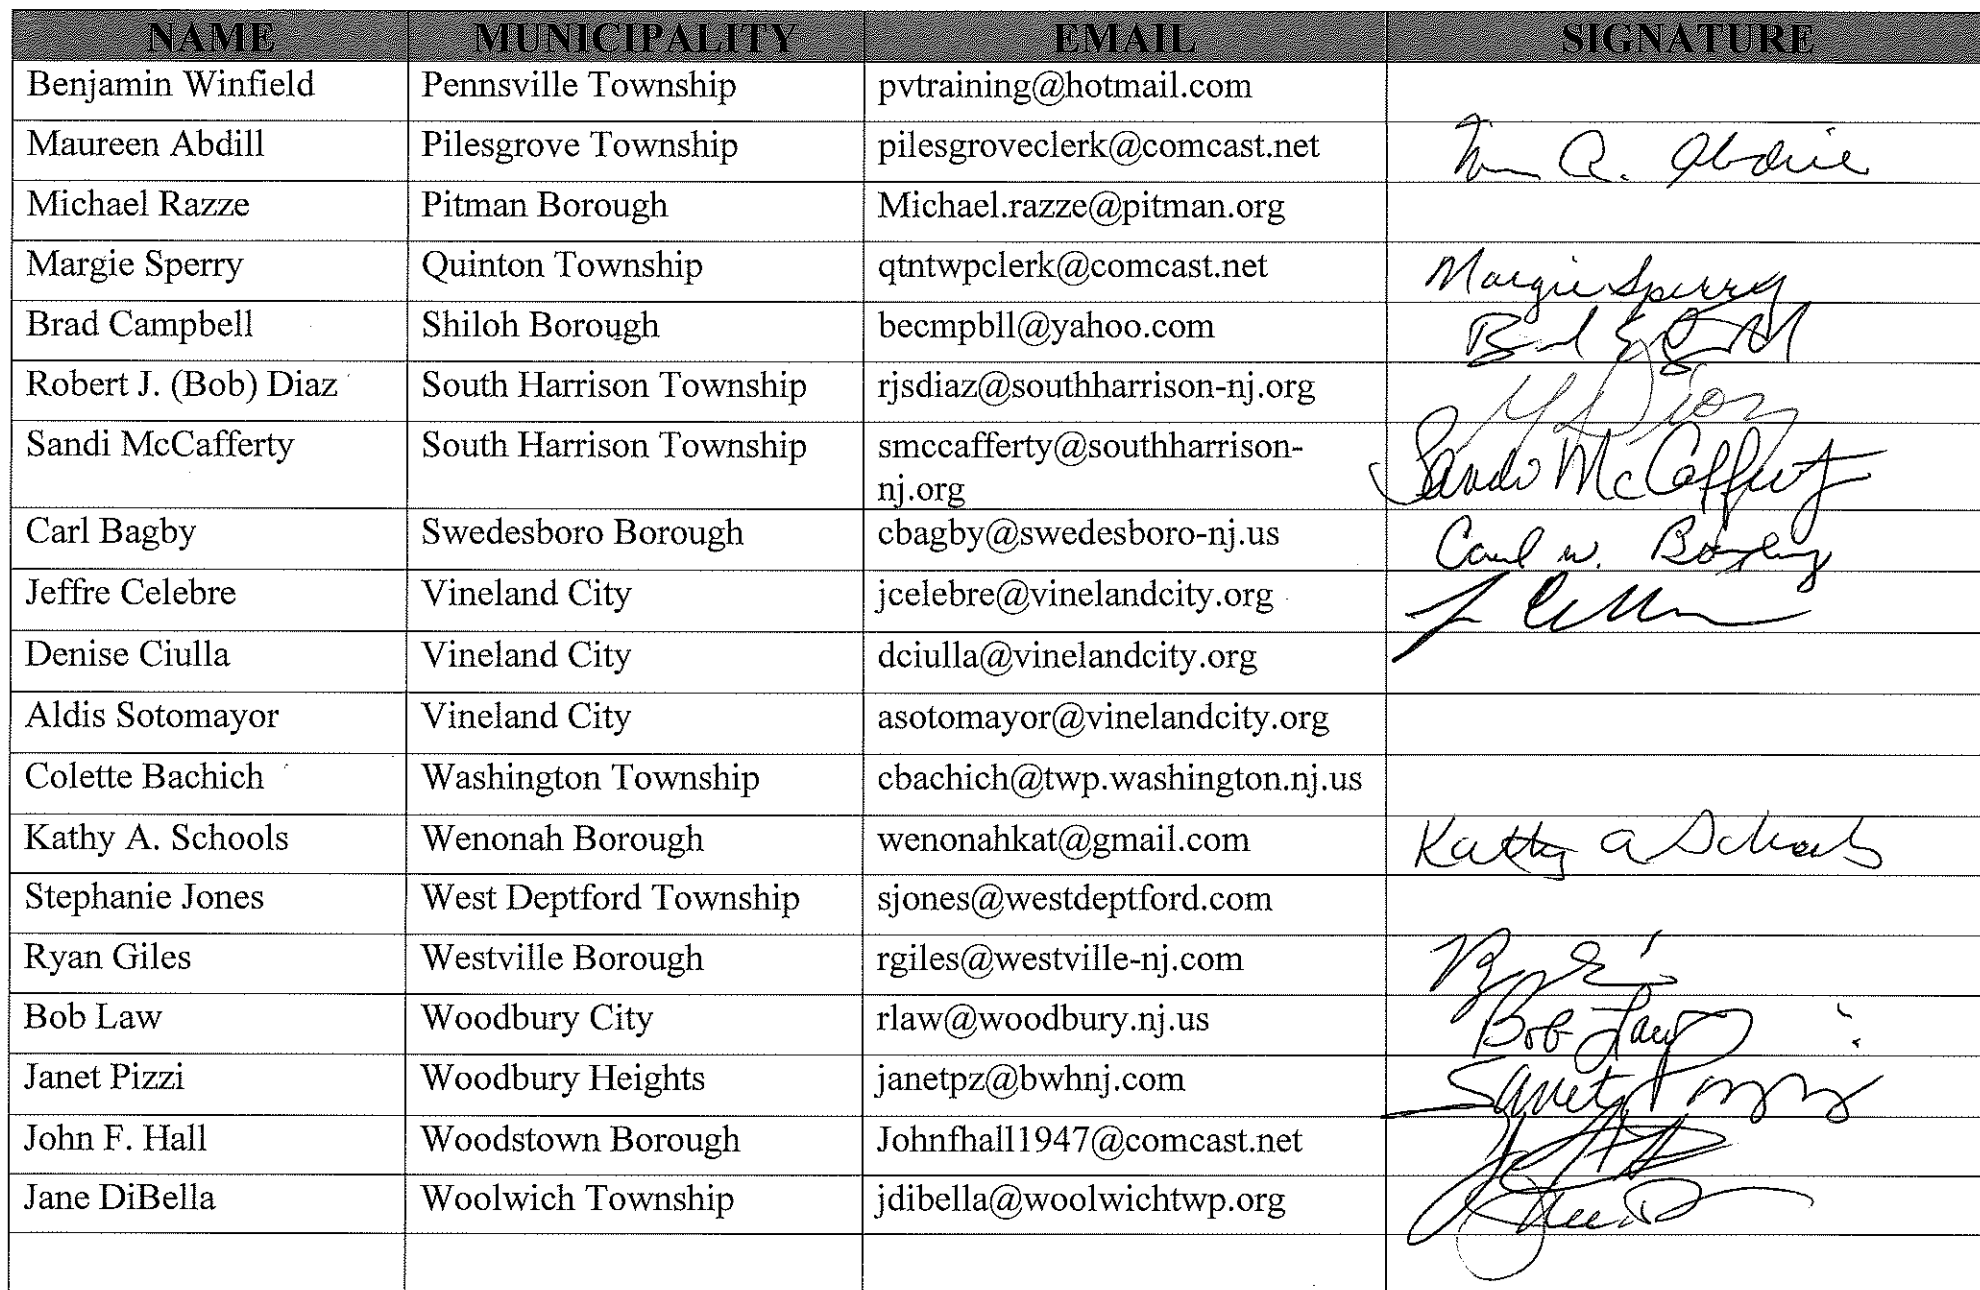 NAME MUNICIPALITY EMAIL SIGNATURE
Benjamin Winfield Pennsville Township pvtraining@hotmail.com
Maureen Abdill Pilesgrove Township pilesgroveclerk@comcast.net
Michael Razze Pitman Borough Michael.razze@pitman.org
Margie Sperry Quinton Township qtntwpclerk@comcast.net Margie Sperry
Brad Campbell Shiloh Borough becmpbll@yahoo.com
Robert J. (Bob) Diaz South Harrison Township rjsdiaz@southharrison-nj.org
Sandi McCafferty South Harrison Township smccafferty@southharrison- Sandi McCafferty
nj.org
Carl Bagby Swedesboro Borough cbagby@swedesboro-nj.us Carl W. Bagby
Jeffre Celebre Vineland City jcelebre@vinelandcity.org
Denise Ciulla Vineland City dciulla@vinelandcity.org
Aldis Sotomayor Vineland City asotomayor@vinelandcity.org
Colette Bachich Washington Township cbachich@twp.washington.nj.us
Kathy A. Schools Wenonah Borough wenonahkat@gmail.com Kathy A Schools
Stephanie Jones West Deptford Township sjones@westdeptford.com
Ryan Giles Westville Borough rgiles@westville-nj.com
Bob Law Woodbury City rlaw@woodbury.nj.us Bob Law
Janet Pizzi Woodbury Heights janetpz@bwhnj.com Janet Pizzi
John F. Hall Woodstown Borough Johnfhall1947@comcast.net
Jane DiBella Woolwich Township jdibella@woolwichtwp.org